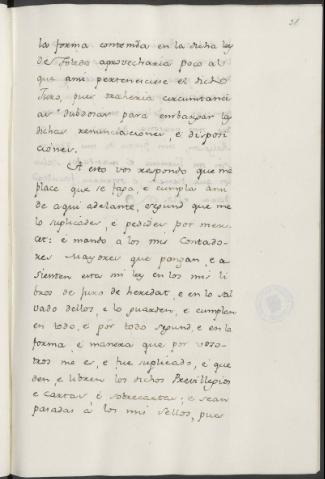 la forma contenida en la dicha ley
de Toledo aprovecharia poco al
que ami pertenesciese el dicho
Juro, pues traheria circunstanci
as dubdosas para embargar las
dichas renunciaciones, e disposi
ciones.
A esto vos respondo que me
place que se faga, e cumpla ansi
de aqui adelante, segund que me
lo suplicades, e pedides por mer
cet: e mando a los mis Contado-
res Mayores que pongan, e a-
sienten esta mi ley en los mis li
bros de juro de heredat, e en lo sal
vado dellos, e lo guarden, e cumplan
en todo, e por todo segund, e en la
forma, e manera que por voso-
tros me es, e fue suplicado, e que
den, e libren los dichos Previllegios
e Cartas, e sobrecartas; e sean
pasadas a los mis sellos, pues